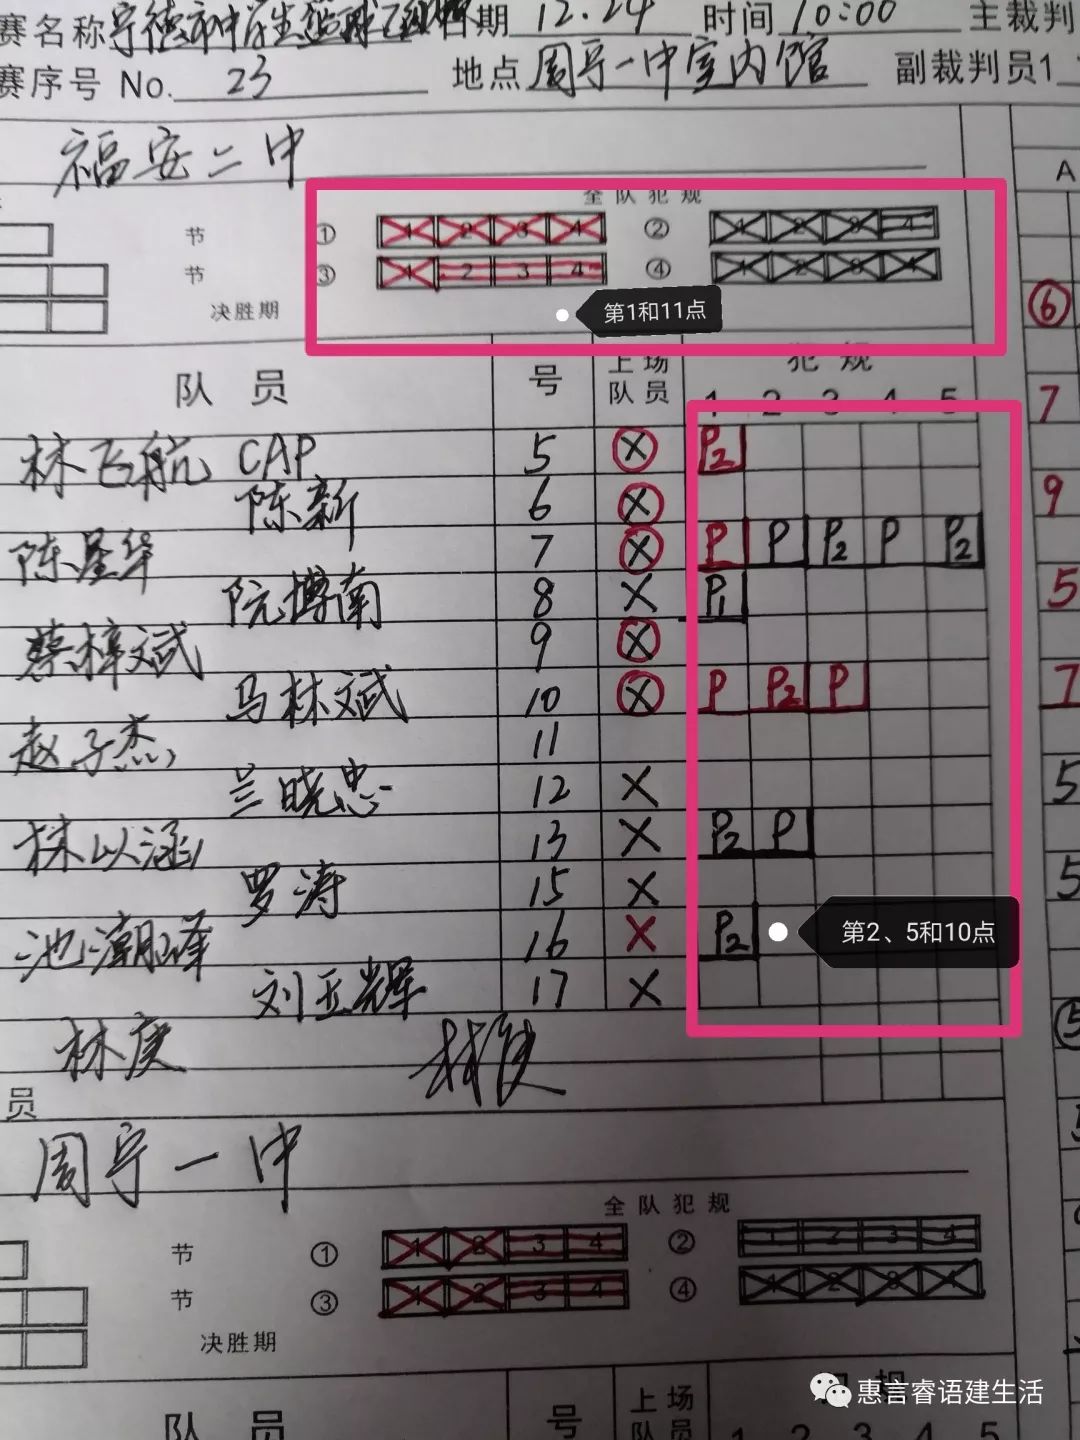 赛名称 宁德市中学生篮球 日期 12.24 时间 10:00 主裁判
赛序号 No. 23 地点 周宁一中室内馆 副裁判员1
福安二中
A
全队犯规
节 ① 1 2 3 4 ② 1 2 3 4
节 ③ 1 2 3 4 ④ 1 2 3 4
决胜期
第1和11点
6
队员 号 上场队员 犯规
1 2 3 4 5
7
林飞航 CAP 5 X P2
陈新 6 X
9
陈星华 7 X P P P2 P P2
阮博南 8 X P1
5
蔡梓斌 9 X
马林斌 10 X P P2 P
7
赵子杰 11
兰晓忠 12 X
5
林以涵 13 X P2 P
罗涛 15 X
5
池潮峰 16 X P2
第2、5和10点
刘玉辉 17 X
林庚
5
员
周宁一中
全队犯规
节 ① 1 2 3 4 ② 1 2 3 4
节 ③ 1 2 3 4 ④ 1 2 3 4
决胜期
惠言睿语建生活
队员 号 上场队员 犯规
1 2 3 4 5